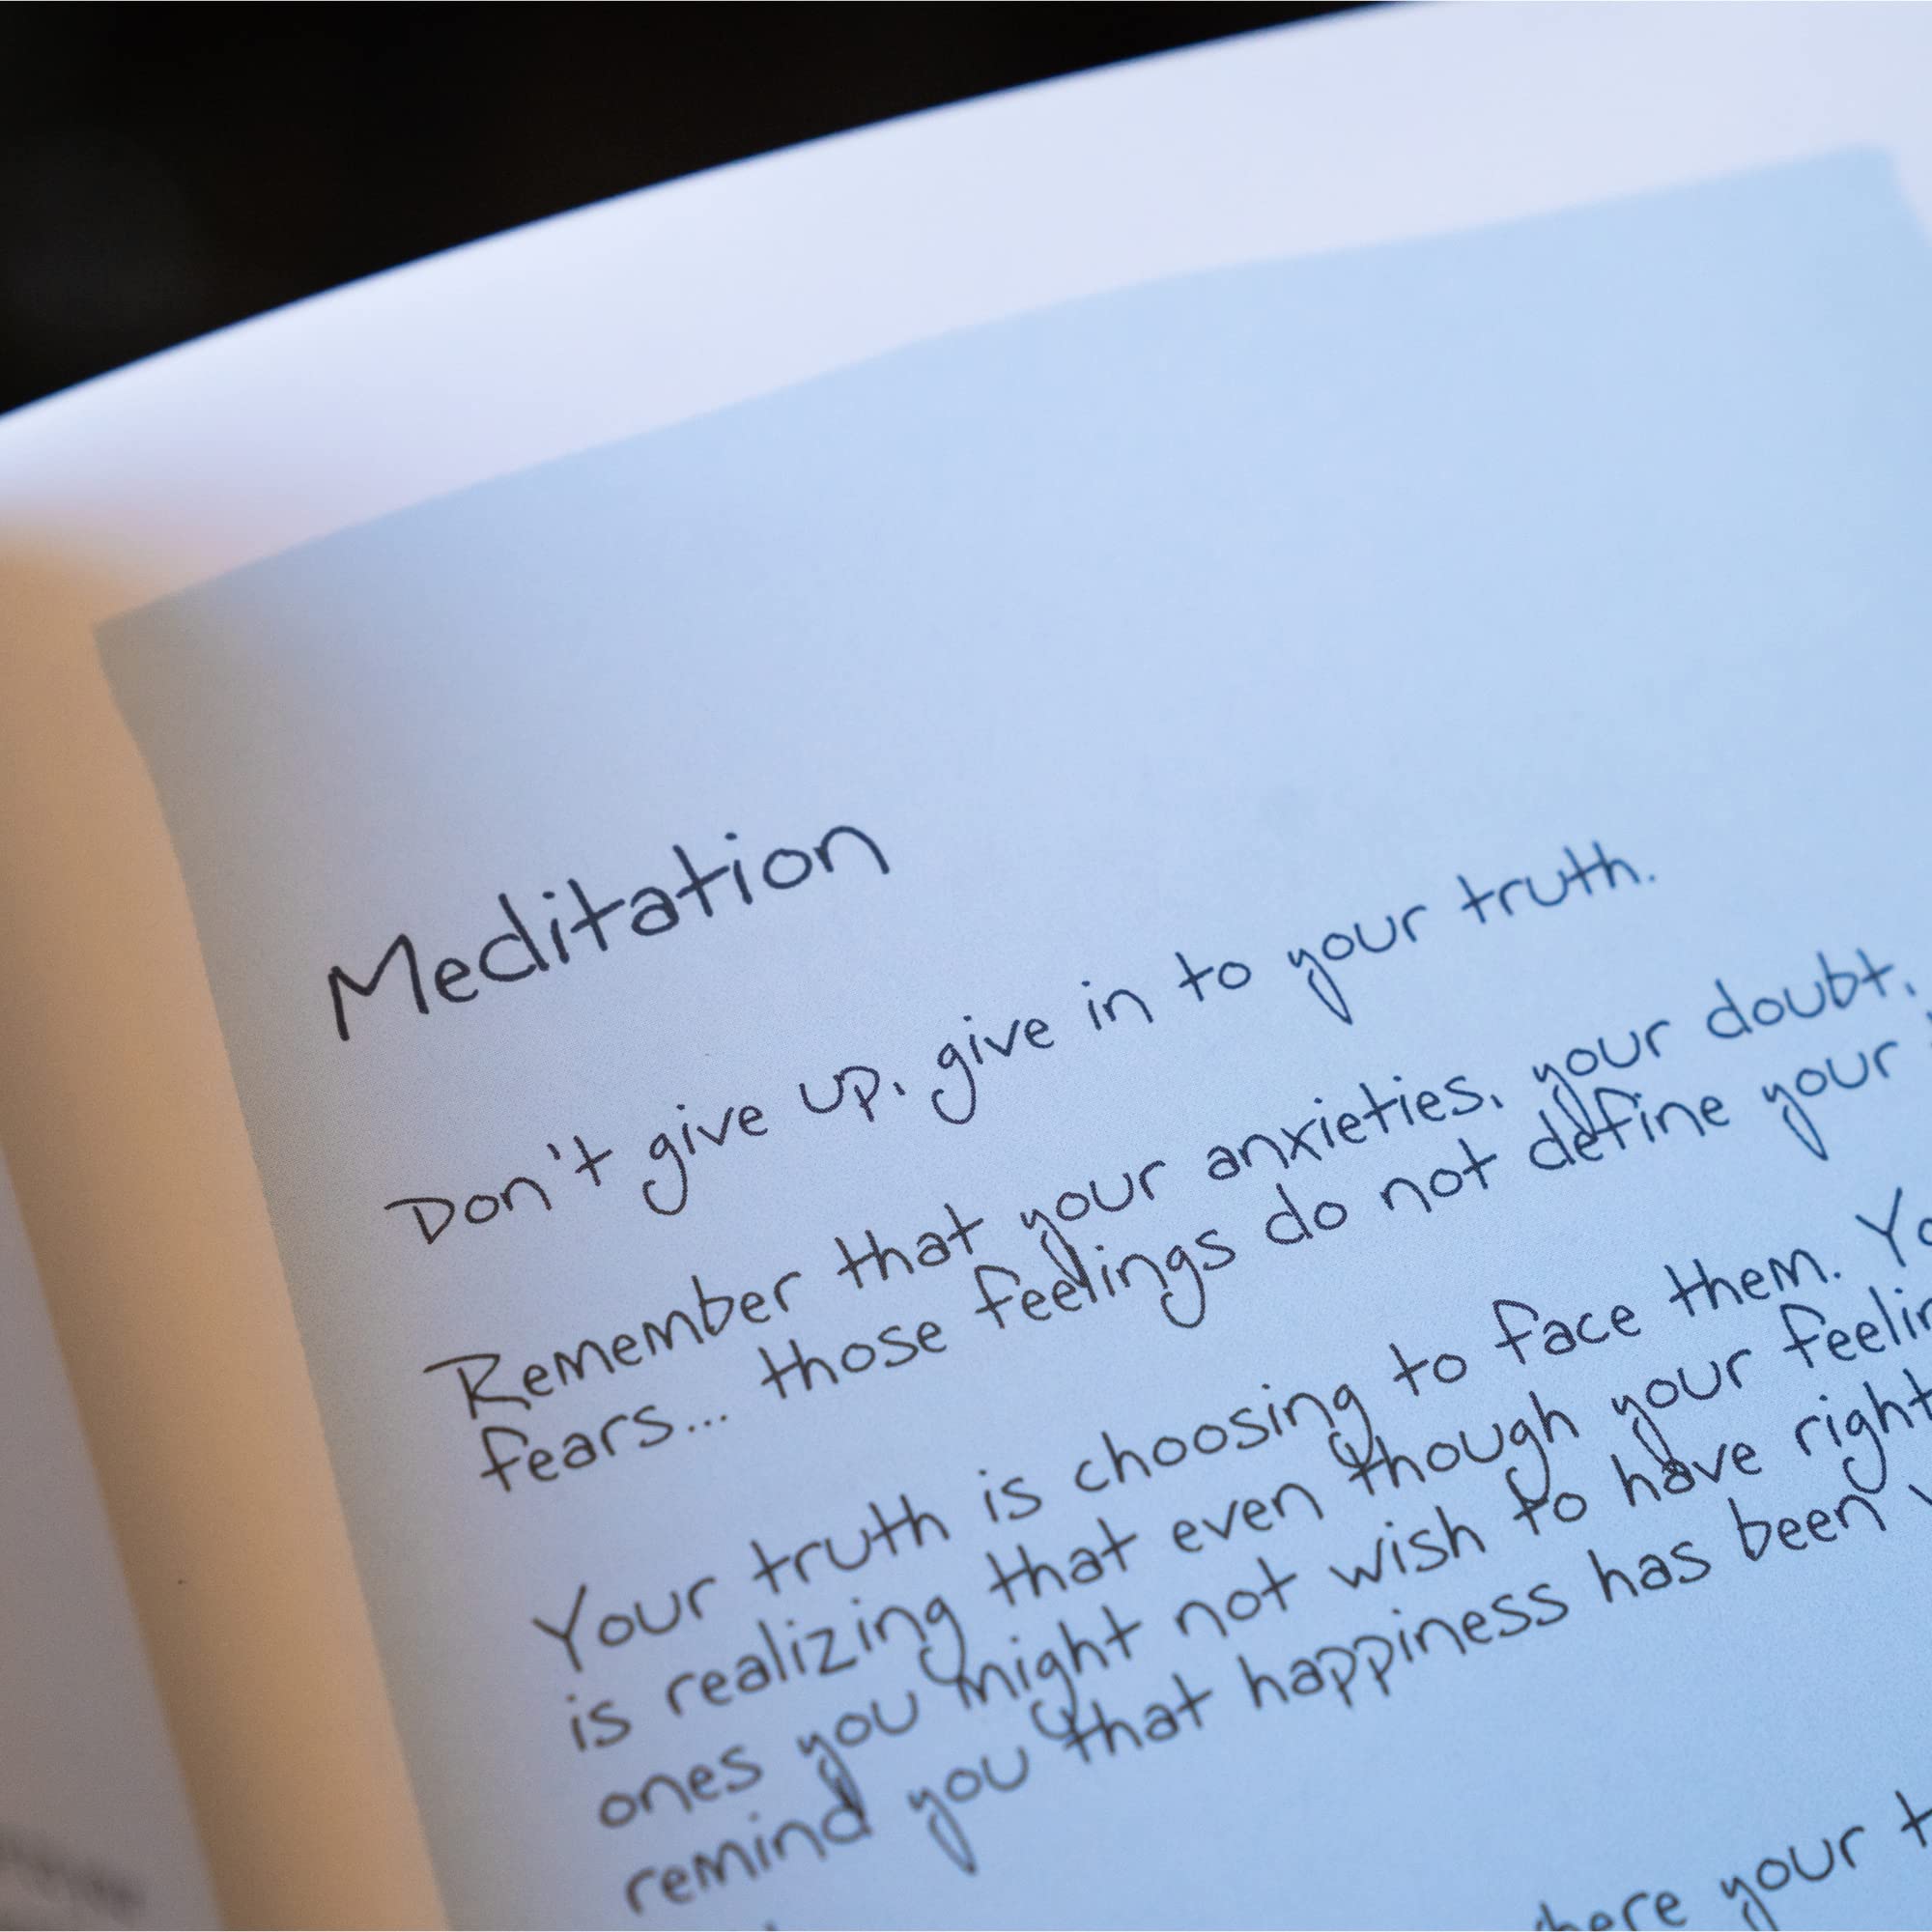 Meditation
Don't give up, give in to your truth.
Remember that your anxieties, your doubt,
fears... those feelings do not define your
Your truth is choosing to face them.
is realizing that even though your
ones you might not wish to have
remind you that happiness has been
your